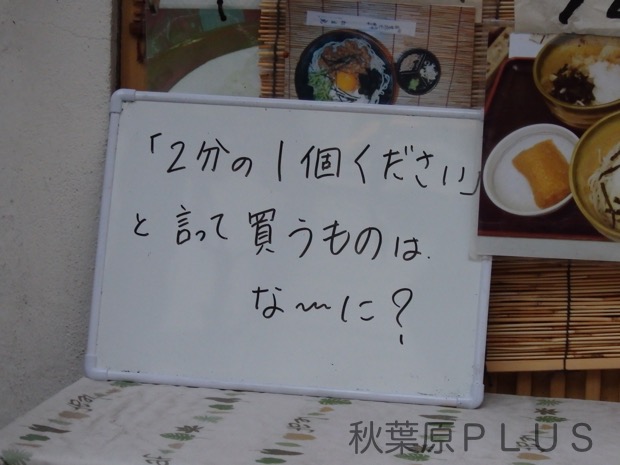 「2分の1個ください」
と言って買うものは
な〜に?
秋葉原PLUS